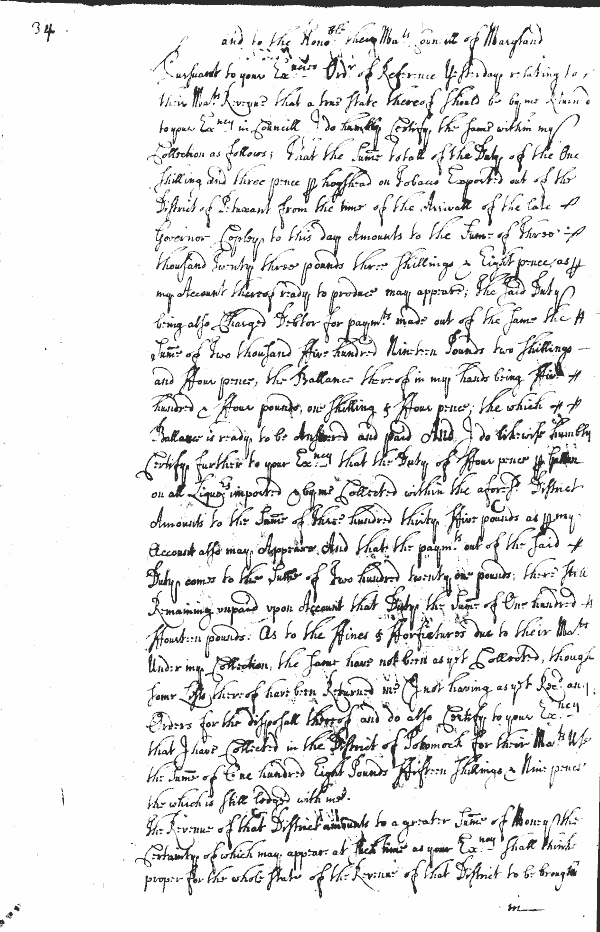 34
and to the Hono:ble their Ma:ts Councill of Maryland
Pursuant to your Ex:ncies Ordr of Reference Yesterday relating to
their Ma:ts Revenue that a true State thereof should be by me
to your Ex:ncy in Councill I do humbly Certify the same within my
Collection as follows; That the Sume totall of the Duty of the One
shilling and three pence p hogshead on Tobacco Exported out of the
District of Petuxant from the time of the Arrivall of the late
Governor Copley to this day Amounts to the Sume of Three
thousand Twenty three pounds three Shillings & Eight pence, as p
my Account thereof ready to produce may appeare; the said Duty
being also Charged Debtor for paym:ts made out of the same the
Sume of Two thousand ffive hundred Nineteen Pounds two Shillings
and ffour pence, the Ballance thereof in my hands being ffive
hundred & ffour pounds, one Shilling & ffour pence; the which
Ballance is ready to be Answered and paid And I do likewise humbly
Certify further to your Ex:ncy that the Duty of ffour pence p Gallon
on all Liquors imported & by me Collected within the afores:d District
Amounts to the Sume of three hundred thirty ffive pounds as p my
Account also may Appeare, And that the paym:ts out of the said
Duty comes to the Sume of Two hundred twenty one pounds; there still
Remaining unpaid upon Account that Duty the Sume of One hundred
ffourteen pounds. As to the ffines & fforfietures due to their Ma:ts
Under my Collection, the same have not been as yet Collected, though
some Lists thereof have been Returned me I not having as yet Rec:d any
Orders for the disposall thereof and do also Certify to your Ex:ncy
that I have Collected in the District of Potomock for their Ma:ts Use
the Sume of One hundred Eight Pounds ffifteen Shillings & Nine pence
the which is still lodged with me.
The Revenue of that District amounts to a greater Sume of Money the
Certainty of which may appear at such time as your Ex:ncy shall think
proper for the whole State of the Revenue of that District to be brought
in